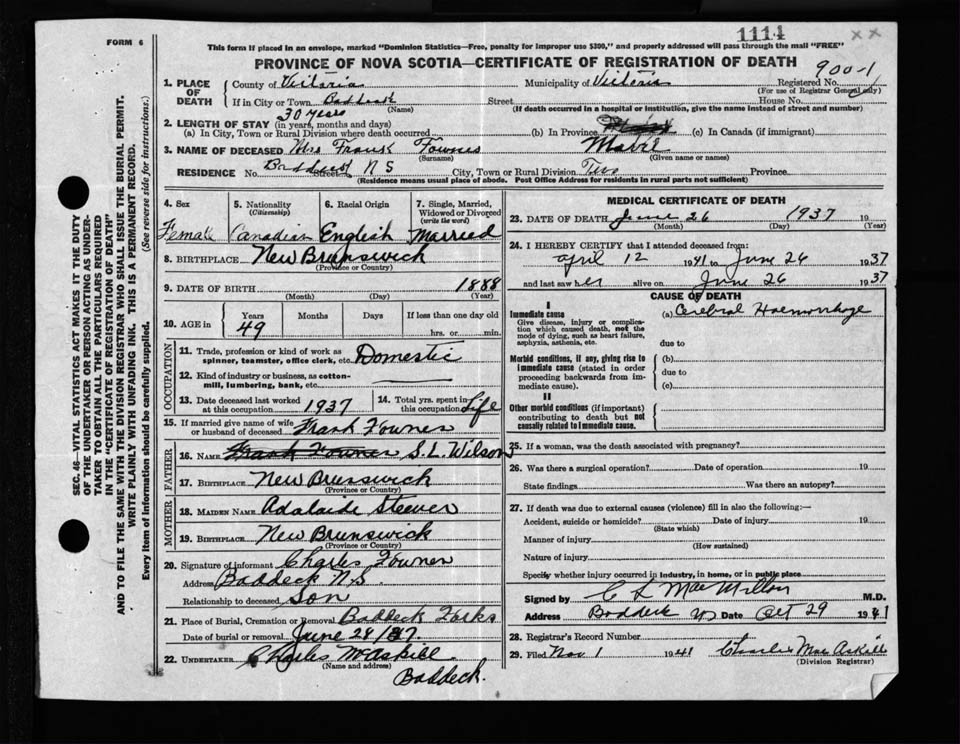 1114 xx
FORM 6
This form if placed in an envelope, marked "Dominion Statistics—Free, penalty for improper use $300," and properly addressed will pass through the mail "FREE"
PROVINCE OF NOVA SCOTIA—CERTIFICATE OF REGISTRATION OF DEATH
900-1
SEC. 46—VITAL STATISTICS ACT MAKES IT THE DUTY
OF THE UNDERTAKER OR PERSON ACTING AS UNDER-
TAKER TO OBTAIN ALL THE PARTICULARS REQUIRED
IN THE "CERTIFICATE OF REGISTRATION OF DEATH"
AND TO FILE THE SAME WITH THE DIVISION REGISTRAR WHO SHALL ISSUE THE BURIAL PERMIT.
WRITE PLAINLY WITH UNFADING INK. THIS IS A PERMANENT RECORD.
Every item of information should be carefully supplied. (See reverse side for instructions.)
1. PLACE OF DEATH County of Victoria Municipality of Victoria Registered No.
(For use of Registrar General only)
If in City or Town Baddeck Street House No.
(Name) (If death occurred in a hospital or institution, give the name instead of street and number)
30 years
2. LENGTH OF STAY (in years, months and days)
(a) In City, Town or Rural Division where death occurred (b) In Province (c) In Canada (if immigrant)
3. NAME OF DECEASED Mrs Frank Fownes Mabel
(Surname) (Given name or names)
RESIDENCE No. Baddeck N S Street City, Town or Rural Division Province
(Residence means usual place of abode. Post Office Address for residents in rural parts not sufficient)
4. Sex 5. Nationality (Citizenship) 6. Racial Origin 7. Single, Married, Widowed or Divorced (write the word)
Female Canadian English Married
8. BIRTHPLACE New Brunswick
(Province or Country)
9. DATE OF BIRTH 1888
(Month) (Day) (Year)
10. AGE in Years Months Days If less than one day old
49 hrs. or min.
OCCUPATION
11. Trade, profession or kind of work as spinner, teamster, office clerk, etc. Domestic
12. Kind of industry or business, as cotton-mill, lumbering, bank, etc.
13. Date deceased last worked at this occupation 1937 14. Total yrs. spent in this occupation Life
15. If married give name of wife or husband of deceased Frank Fownes
FATHER
16. NAME Frank Fownes S. L. Wilson
17. BIRTHPLACE New Brunswick
(Province or Country)
MOTHER
18. MAIDEN NAME Adalaide Steever
19. BIRTHPLACE New Brunswick
(Province or Country)
20. Signature of informant Charles Fownes
Address Baddeck N.S.
Relationship to deceased Son
21. Place of Burial, Cremation or Removal Baddeck Forks
Date of burial or removal June 28/37.
22. UNDERTAKER Charles McAskill
(Name and address)
Baddeck.
MEDICAL CERTIFICATE OF DEATH
23. DATE OF DEATH June 26 1937 19
(Month) (Day) (Year)
24. I HEREBY CERTIFY that I attended deceased from:
April 12 1941 to June 26 1937
and last saw her alive on June 26 1937
CAUSE OF DEATH
I
Immediate cause (a) Cerebral Haemorrhage
Give disease, injury or complica-
tion which caused death, not the
mode of dying, such as heart failure,
asphyxia, asthenia, etc.
due to
Morbid conditions, if any, giving rise to (b)
immediate cause (stated in order due to
proceeding backwards from im-
mediate cause). (c)
II
Other morbid conditions (if important)
contributing to death but not
causally related to immediate cause.
25. If a woman, was the death associated with pregnancy?
26. Was there a surgical operation? Date of operation 19
State findings Was there an autopsy?
27. If death was due to external causes (violence) fill in also the following:—
Accident, suicide or homicide? Date of injury 19
(State which)
Manner of injury
(How sustained)
Nature of injury
Specify whether injury occurred in industry, in home, or in public place
Signed by C L MacMillan M.D.
Address Baddeck NS Date Oct 29 1941
28. Registrar's Record Number
29. Filed Nov 1 1941 Charles MacAskill
(Division Registrar)